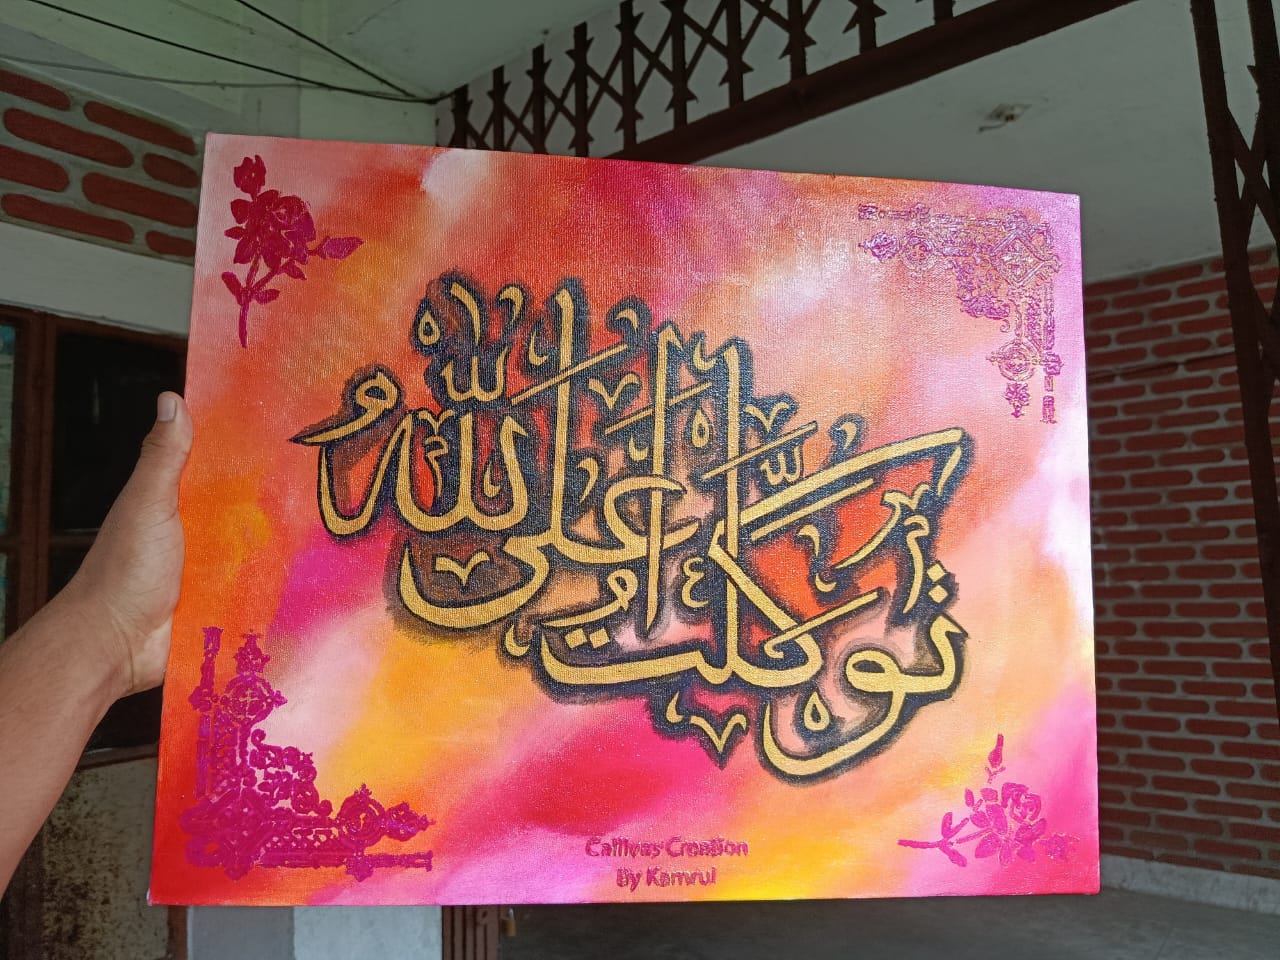 توكلت على الله
Callivas Creation
By Kamrul